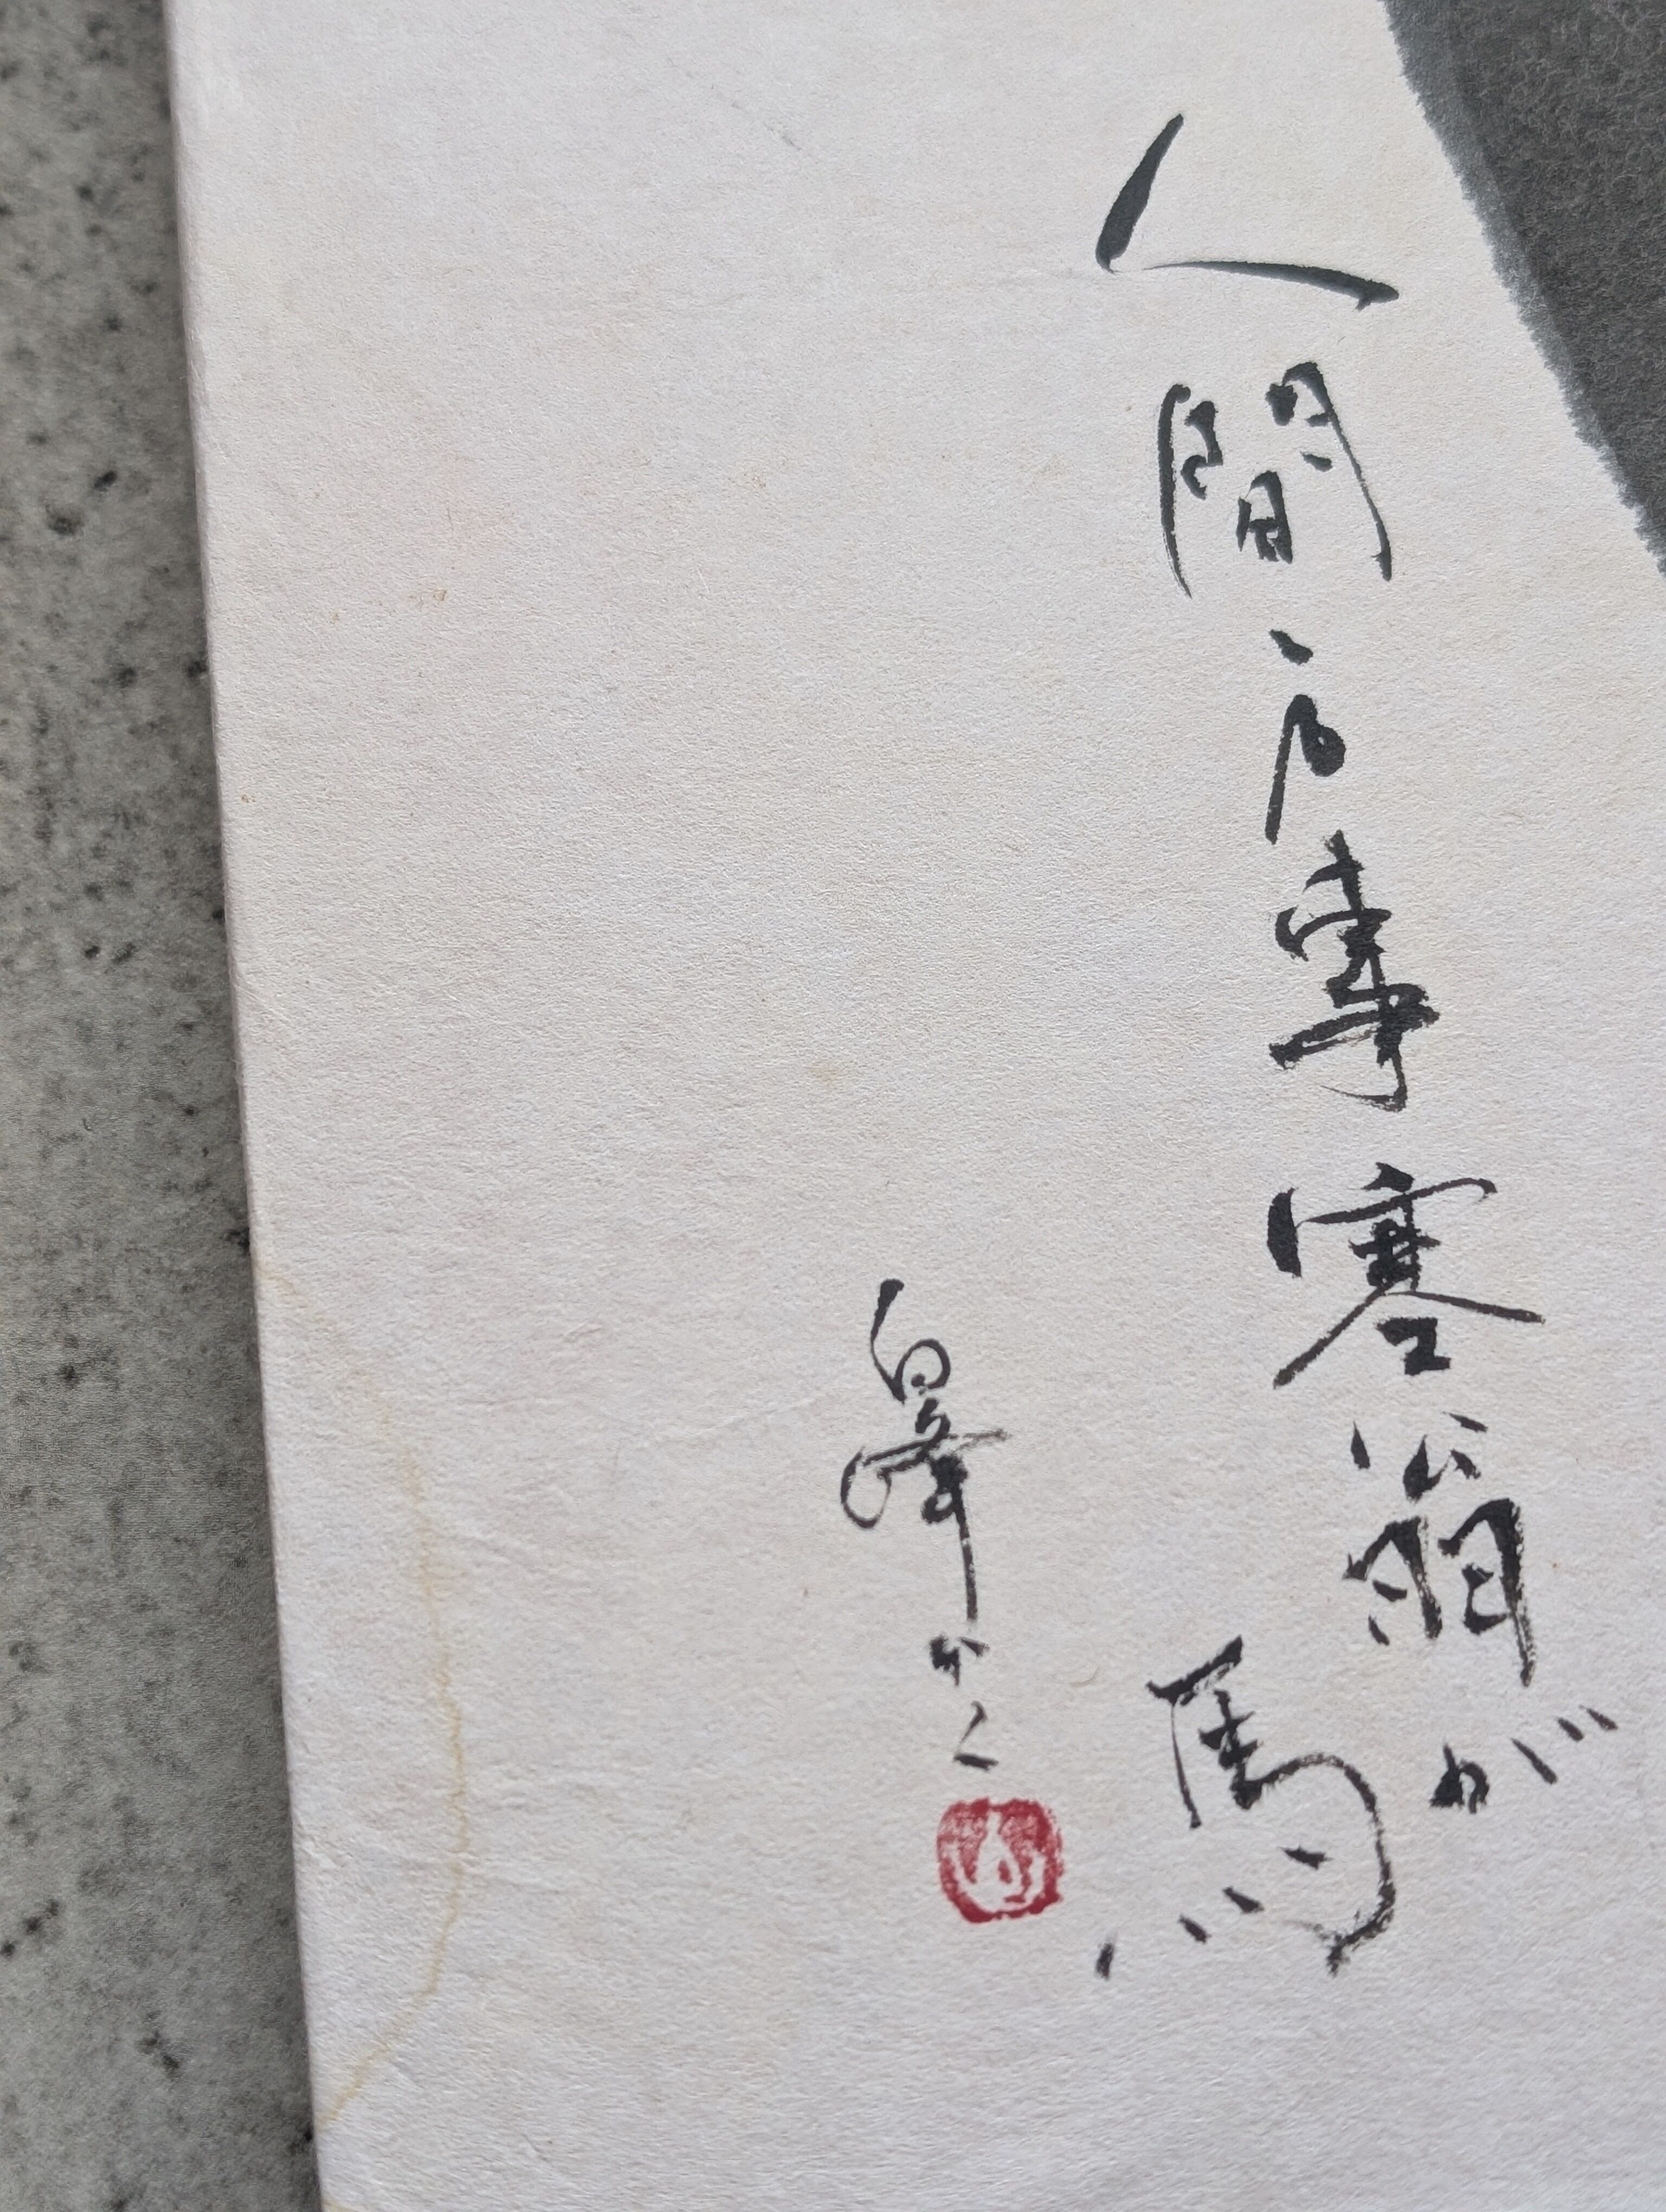 人間万事塞翁が
馬
白峯かく